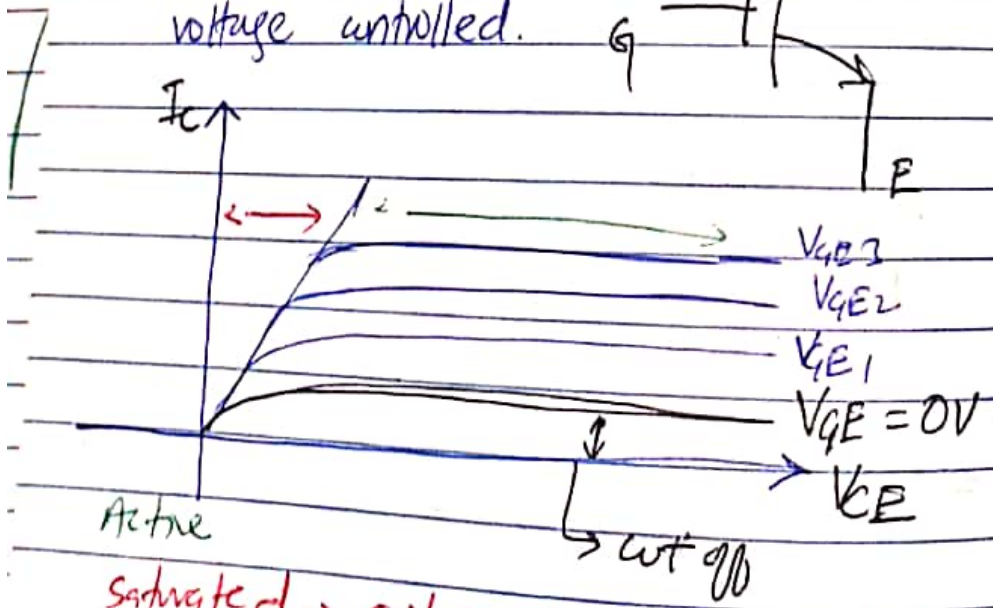 voltage controlled.
G
E
Ic
VGE3
VGE2
VGE1
VGE = 0V
VCE
cut off
Active
Saturated